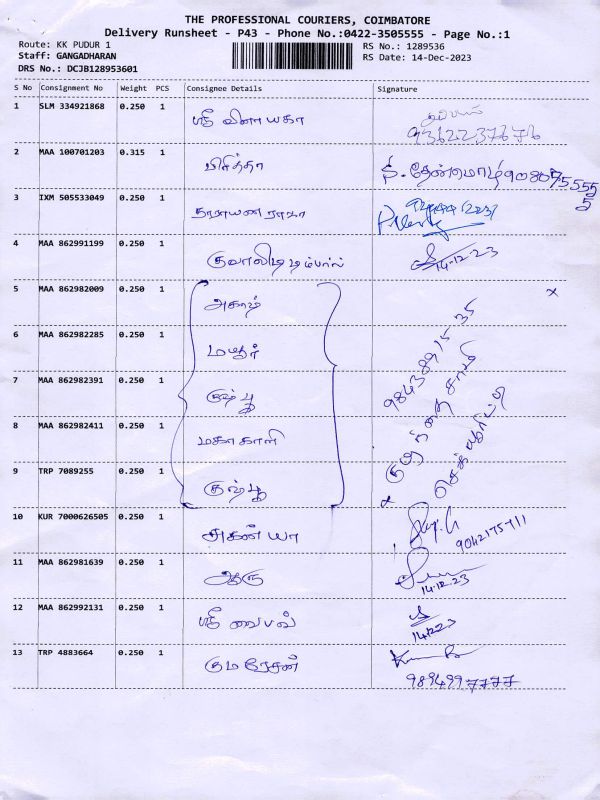 THE PROFESSIONAL COURIERS, COIMBATORE
Delivery Runsheet - P43 - Phone No.:0422-3505555 - Page No.:1
Route: KK PUDUR 1
RS No.: 1289536
Staff: GANGADHARAN
RS Date: 14-Dec-2023
DRS No.: DCJB128953601
S No Consignment No Weight PCS Consignee Details Signature
1 SLM 334921868 0.250 1 ஸ்ரீ விநாயகா
9362237676
2 MAA 100701203 0.315 1
3 IXM 505533049 0.250 1 நாராயண ராகா
4 MAA 862991199 0.250 1 14.12.23
5 MAA 862982009 0.250 1 x
6 MAA 862982285 0.250 1
98438915 35
7 MAA 862982391 0.250 1 குஷ்பூ
8 MAA 862982411 0.250 1 மகாகாளி
9 TRP 7089255 0.250 1 குஷ்பூ
10 KUR 7000626505 0.250 1 அகன்யா
9042175711
11 MAA 862981639 0.250 1 ஆரு
14.12.23
12 MAA 862992131 0.250 1 ஸ்ரீ வைபவ்
13 TRP 4883664 0.250 1 குமரேசன்
9894997777